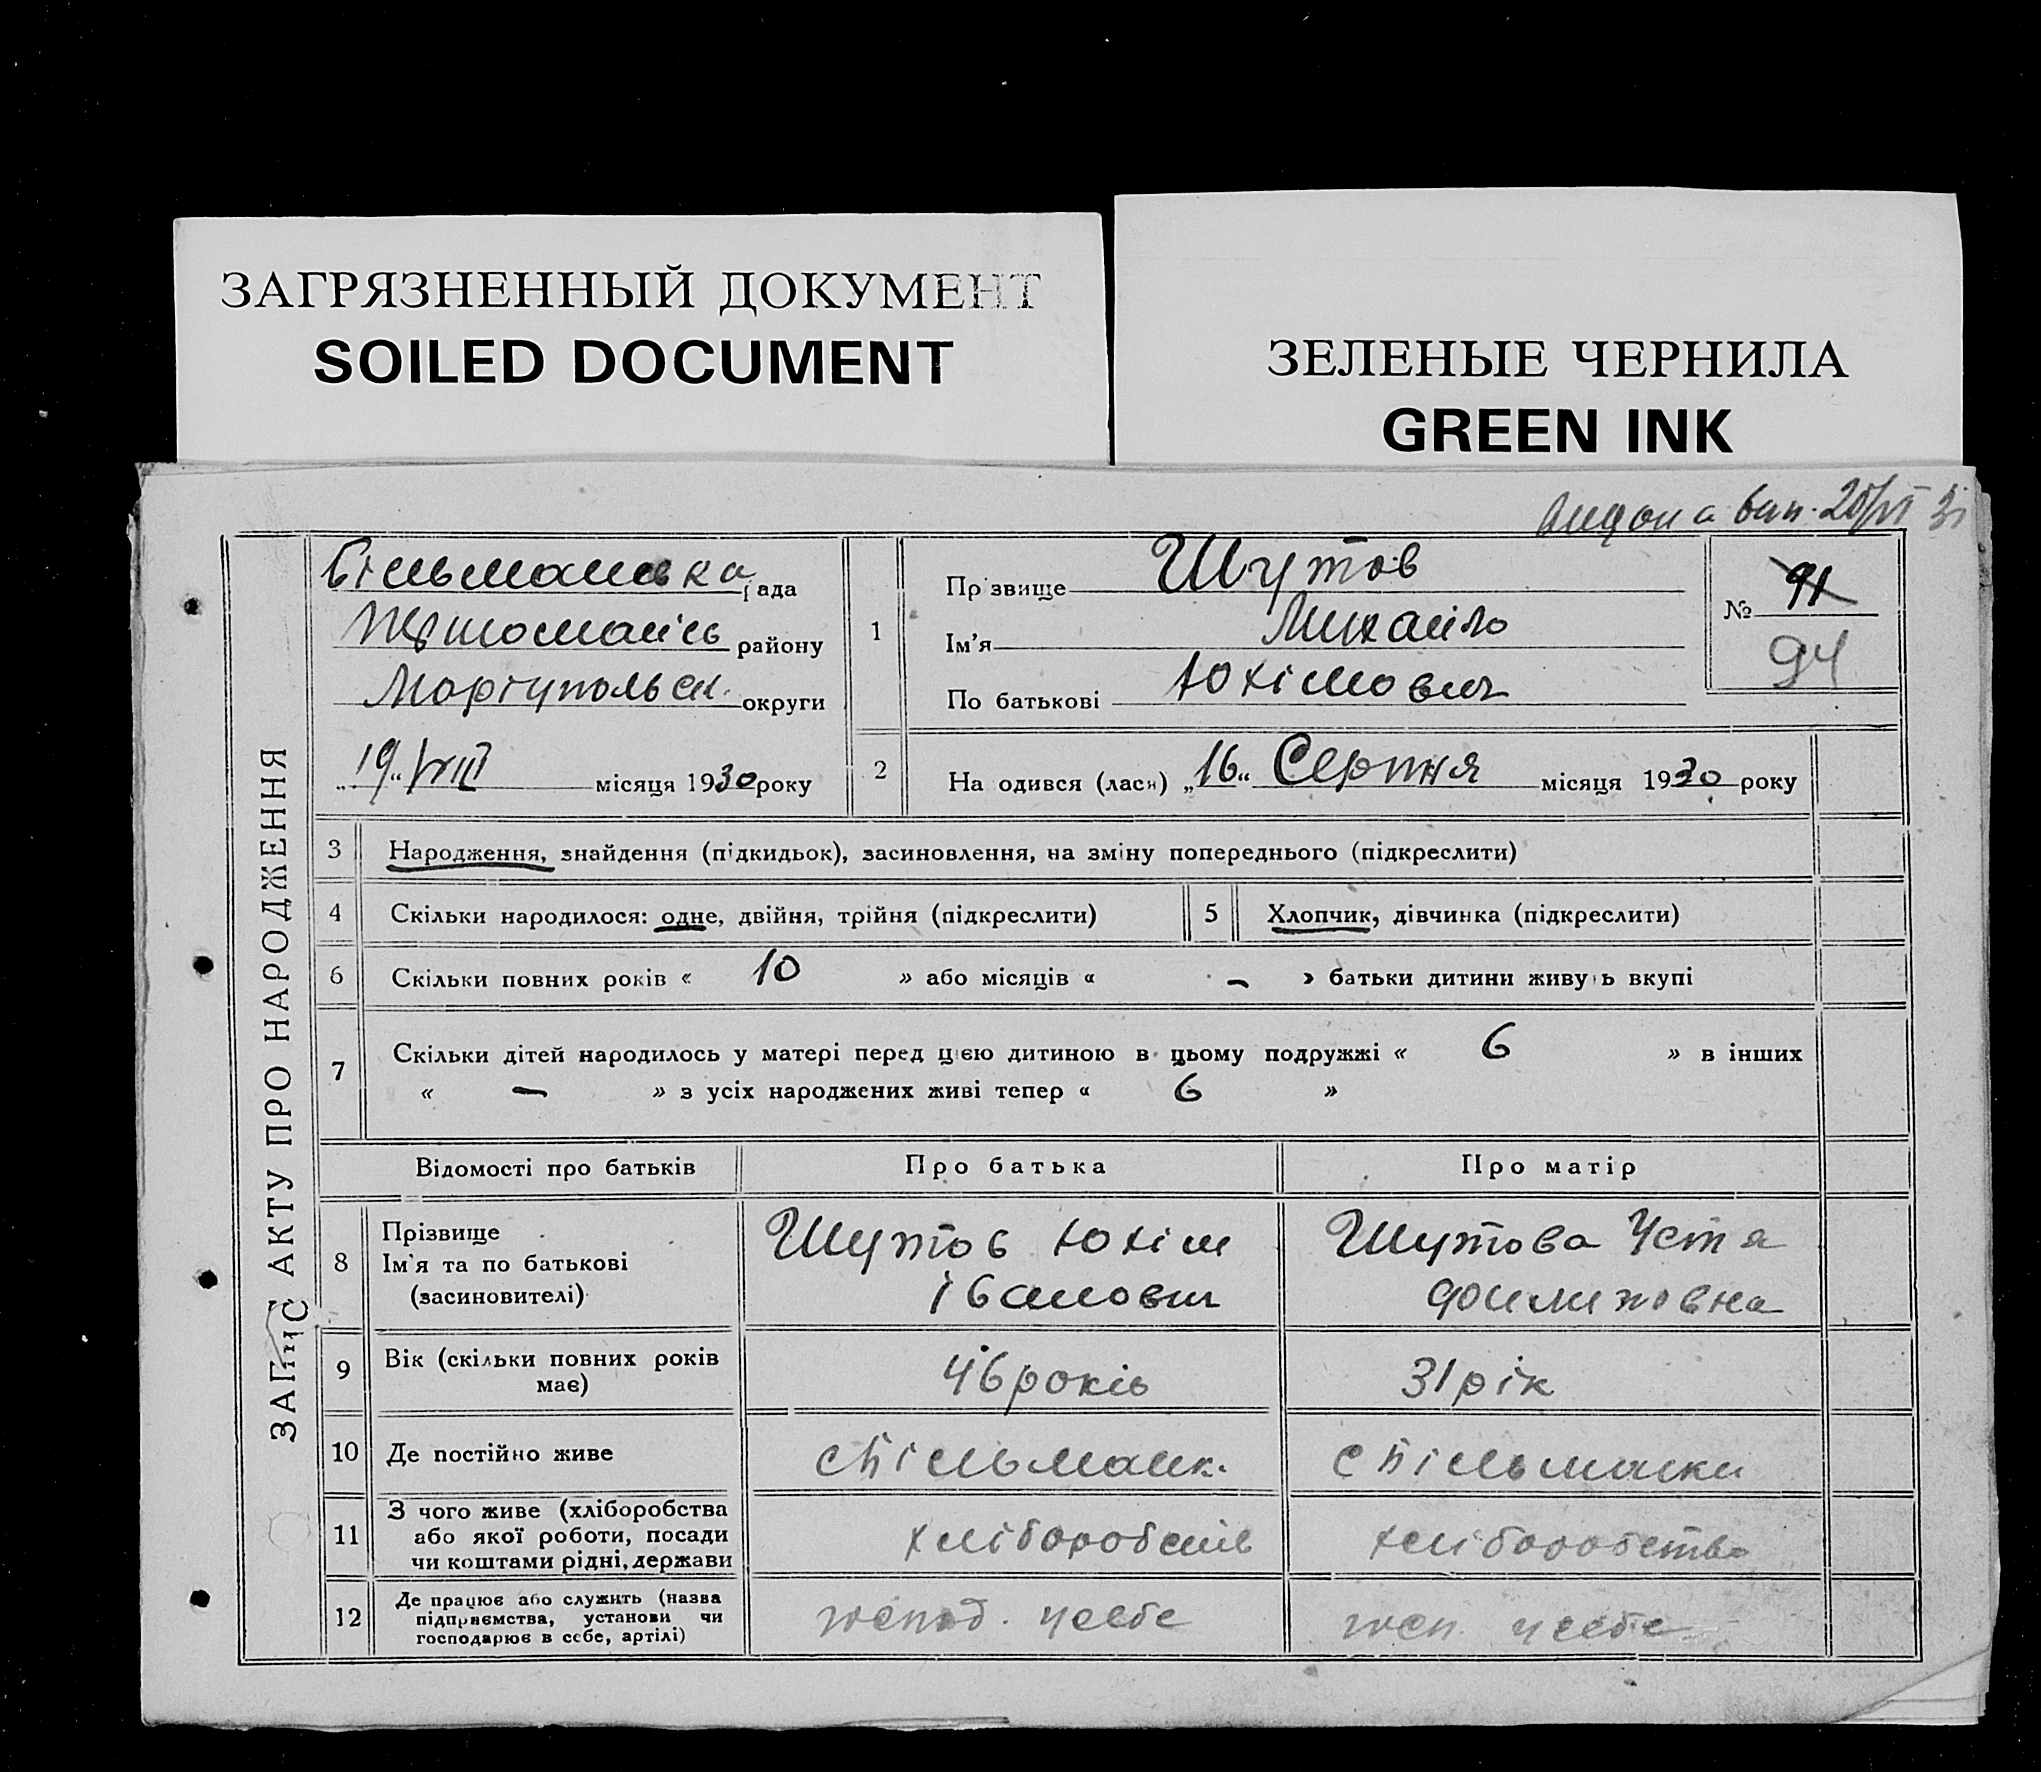 ЗАГРЯЗНЕННЫЙ ДОКУМЕНТ
SOILED DOCUMENT
ЗЕЛЕНЫЕ ЧЕРНИЛА
GREEN INK
вип. 20/VI 31
ЗАПИС АКТУ ПРО НАРОДЖЕННЯ
рада
району
Маріупольськ. округи
„19“ VIII місяця 1930 року
1
Прізвище Шутов
Ім'я Михайло
По батькові Юхімович
№ 91
94
2 Народився (лася) „16“ Серпня місяця 1930 року
3 Народження, знайдення (підкидьок), засиновлення, на зміну попереднього (підкреслити)
4 Скільки народилося: одне, двійня, трійня (підкреслити) 5 Хлопчик, дівчинка (підкреслити)
6 Скільки повних років « 10 » або місяців « – » батьки дитини живуть вкупі
7 Скільки дітей народилось у матері перед цією дитиною в цьому подружжі « 6 » в інших
« – » з усіх народжених живі тепер « 6 »
Відомості про батьків Про батька Про матір
8 Прізвище
Ім'я та по батькові
(засиновителі)
Шутов Юхім
Іванович
Шутова Устя
Филиповна
9 Вік (скільки повних років
має)
46 років 31 рік
10 Де постійно живе
11 З чого живе (хліборобства
або якої роботи, посади
чи коштами рідні, держави
хліборобств хліборобство
12 Де працює або служить (назва
підприємства, установи чи
господарює в себе, артілі)
у себе у себе